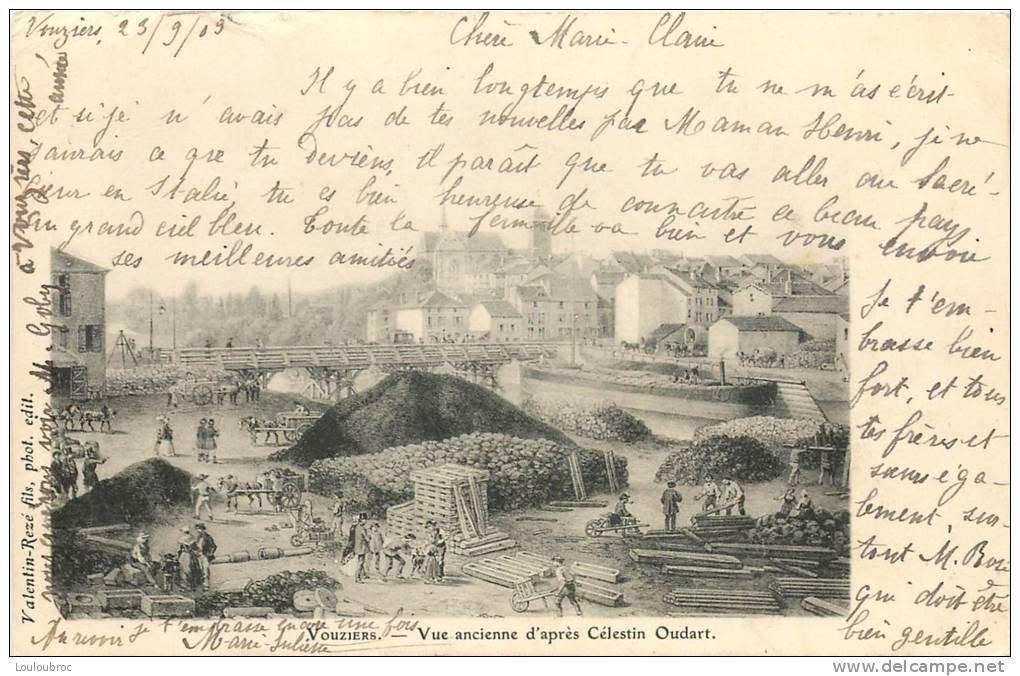 Vouziers, 23/9/03
Chère Marie-Claire
Il y a bien longtemps que tu ne m'as écrit
et si je n'avais pas de tes nouvelles par Maman Henri, je ne
saurais ce que tu deviens, il paraît que tu vas aller au Sacré-
Cœur en Italie, tu es bien heureuse de connaitre ce beau pays
au grand ciel bleu. Toute la famille va bien et vous envoie
ses meilleures amitiés
Je t'em-
brasse bien
fort, et tous
tes frères et
sœurs éga-
lement, sur-
tout M.
qui doit être
bien gentille
Au revoir je t'embrasse encore une fois
Marie-Juliette
à Vouziers, cette année
vous
Valentin-Rezé fils, phot. édit.
VOUZIERS. — Vue ancienne d'après Célestin Oudart.
Louloubroc
www.delcampe.net